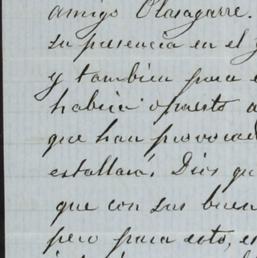 amigo Olasagarre.
su presencia en el
y tambien para
habia opuesto
que han provocad
estallará. Dios qu
que con sus buen
pero para esto, es